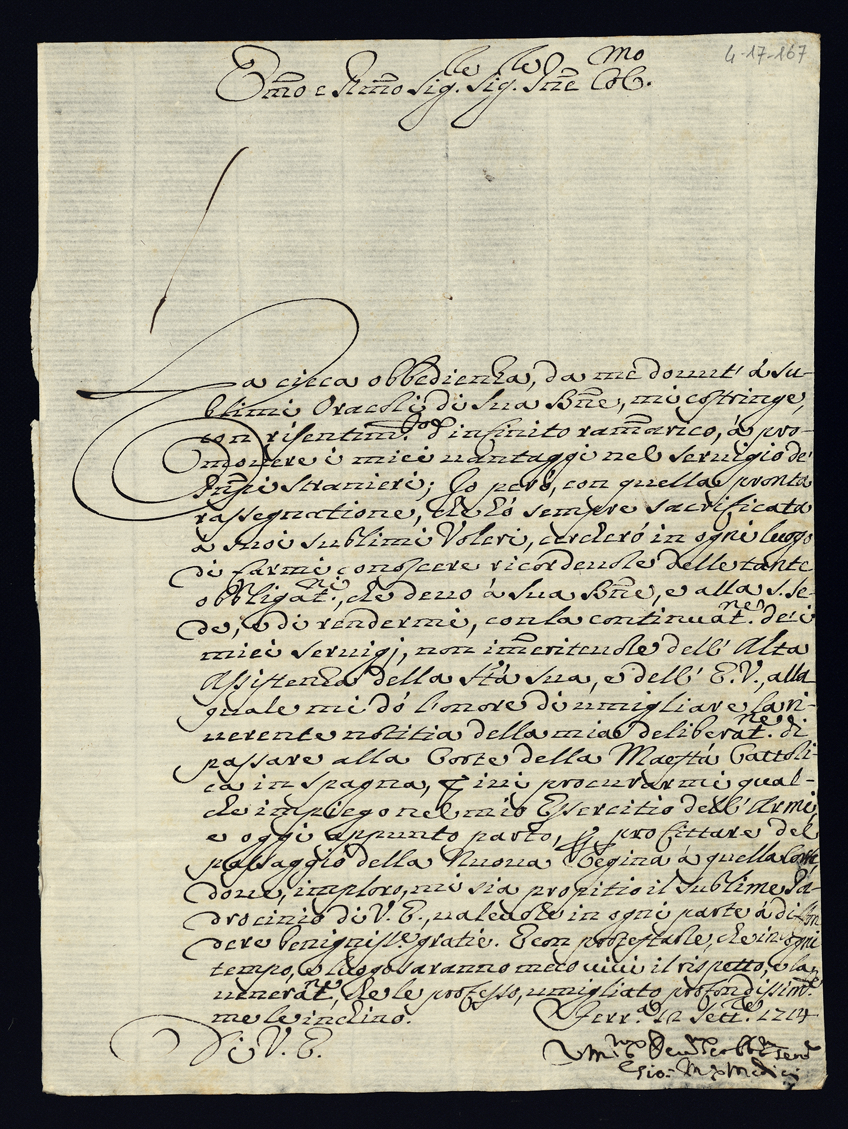 4-17-167
Emo e Rmo Sig.re Sig.re Pne Col.mo
La cieca obbedienza, da me dovut' à su-
blimi Oracoli di Sua Bne, mi costringe,
con risentim.to d' infinito ramarico, à pro-
movere i miei vantaggi nel servigio de'
Pnpi stranieri; Io però, con quella pronta
rassegnatione, che hò sempre sacrificata
à suoi sublimi Voleri, cercherò in ogni luogo
di farmi conoscere ricordevole delle tante
obbligat.ni, che devo à Sua Bne, e alla S. Se-
de, e di rendermi, con la continuat.ne de i
miei servigj, non imeritevole dell' Alta
Assistenza della Stà sua, e dell' E.V., alla
quale mi dò l'onore di umigliare la ri-
verente notitia della mia deliberat.ne di
passare alla Corte della Maestà Cattoli-
ca in Spagna, p ivi procurarmi qual-
che impiego nel mio Essercitio dell' Armi,
e oggi appunto parto, p profittare del
passaggio della Nuova Regina à quella Corte
dove, imploro, mi sia propitio il sublime Pa-
drocinio di V. E., valevole in ogni parte à difon
dere benigniss.e gratie. E con protestarle, che in ogni
tempo, e luogo saranno meco vivi il rispetto, e la
venerat.ne, che le professo, umigliato profondissim.te
me le inchino. Ferr.a 12 Sett.re 1714
Di V. E.
Um.mo Dev.mo Obb.mo Ser.e
Gio: Medici